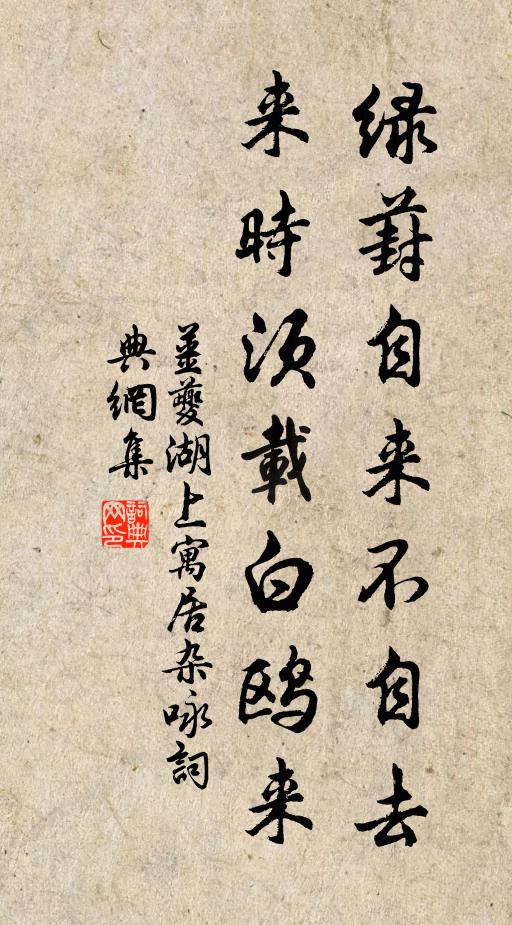 绿葑自来不自去
来時须載白鸥来
姜夔湖上寓居杂咏詞
典網集
詞典网印